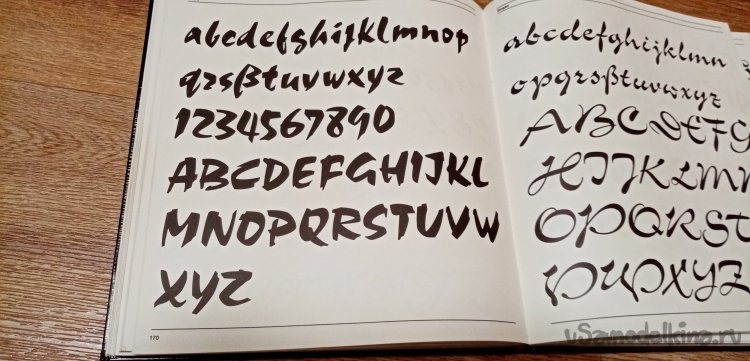 abcdefghijklmnop
qrsßtuvwxyz
1234567890
ABCDEFGHIJKL
MNOPQRSTUVW
XYZ
170
abcdefghijklmn
opqrsßtuvwxyz
ABCDEFG
HIJKLMN
OPQRST
XYZ
vSamodelkino.ru